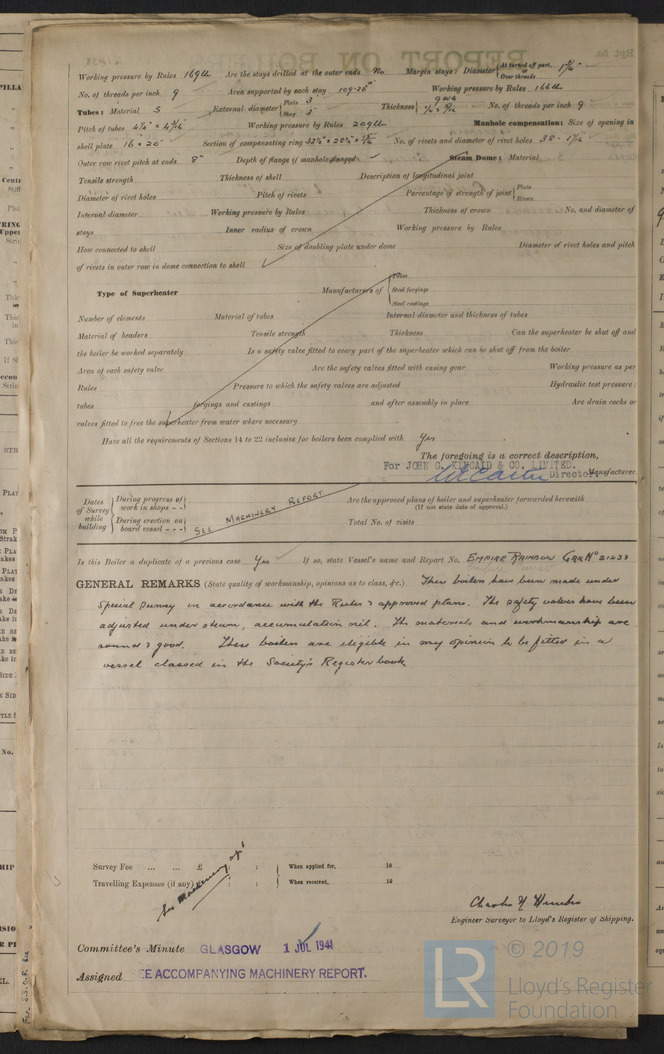 Working pressure by Rules 169 lb Are the stays drilled at the outer ends No Margin stays: Diameter { At turned off part, 1¾" or Over threads
No. of threads per inch 9 Area supported by each stay 109.25" Working pressure by Rules 166 lb
Tubes: Material S External diameter { Plain 3" Stay 3" Thickness { No. of threads per inch 9
Pitch of tubes Working pressure by Rules 209 lb Manhole compensation: Size of opening in
shell plate 16 × 20" Section of compensating ring No. of rivets and diameter of rivet holes 38 -
Outer row rivet pitch at ends 8" Depth of flange if manhole flanged Steam Dome: Material
Tensile strength Thickness of shell Description of longitudinal joint
Diameter of rivet holes Pitch of rivets Percentage of strength of joint { Plate Rivets
Internal diameter Working pressure by Rules Thickness of crown No. and diameter of
stays Inner radius of crown Working pressure by Rules
How connected to shell Size of doubling plate under dome Diameter of rivet holes and pitch
of rivets in outer row in dome connection to shell
Type of Superheater Manufacturers of { Tubes Steel forgings Steel castings
Number of elements Material of tubes Internal diameter and thickness of tubes
Material of headers Tensile strength Thickness Can the superheater be shut off and
the boiler be worked separately Is a safety valve fitted to every part of the superheater which can be shut off from the boiler
Area of each safety valve Are the safety valves fitted with easing gear Working pressure as per
Rules Pressure to which the safety valves are adjusted Hydraulic test pressure:
tubes forgings and castings and after assembly in place Are drain cocks or
valves fitted to free the superheater from water where necessary
Have all the requirements of Sections 14 to 22 inclusive for boilers been complied with Yes
The foregoing is a correct description,
For JOHN G. KINCAID & CO. LIMITED.
Director. Manufacturer.
Dates of Survey while building { During progress of work in shops - - } { During erection on board vessel - - - } SEE MACHINERY REPORT Are the approved plans of boiler and superheater forwarded herewith
(If not state date of approval.)
Total No. of visits
Is this Boiler a duplicate of a previous case Yes If so, state Vessel's name and Report No. EMPIRE RAINBOW GRK No 21433
GENERAL REMARKS (State quality of workmanship, opinions as to class, &c.) These boilers have been made under
Special Survey in accordance with the Rules & approved plans. The safety valves have been
adjusted under steam, accumulation nil. The materials and workmanship are
sound & good. These boilers are eligible in my opinion to be fitted in a
vessel classed in the Society's Register book
Survey Fee ... ... £ : : When applied for, 19
Travelling Expenses (if any) £ : : When received, 19
See Machinery rpt
Engineer Surveyor to Lloyd's Register of Shipping.
Committee's Minute GLASGOW 1 JUL 1941
Assigned SEE ACCOMPANYING MACHINERY REPORT.
LR
© 2019
Lloyd's Register
Foundation